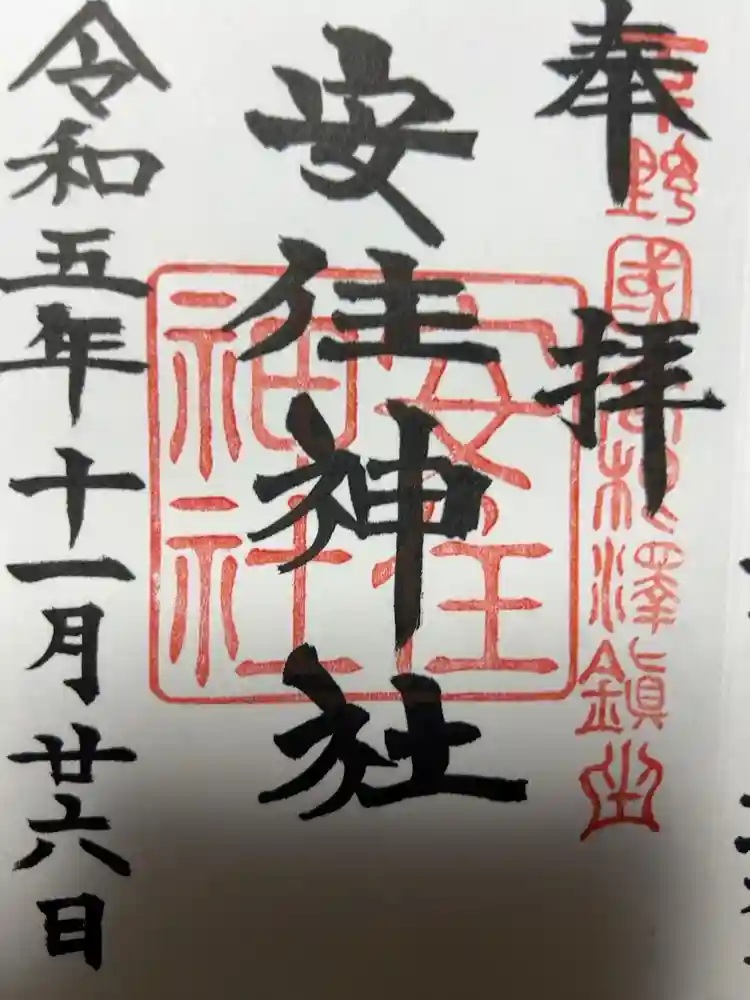 奉拝
下野國高根澤鎮坐
安住神社
安住神社
令和五年十一月廿六日